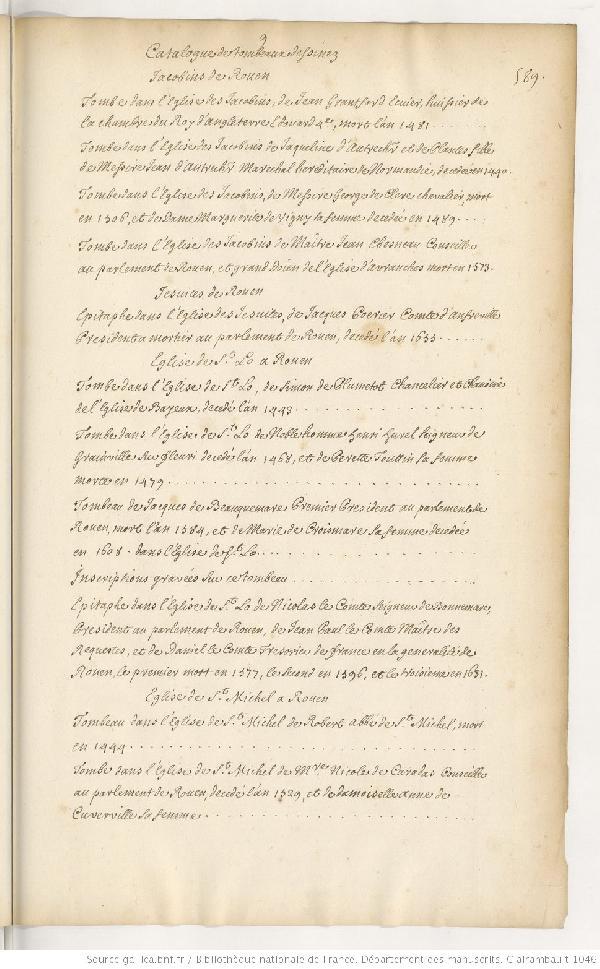 9
Catalogue de tombeaux dessinez
589.
Jacobins de Rouen
Tombe dans l'Eglise des Jacobins, de Jean Grantford Ecuier, huissier de
la chambre du Roy d'Angleterre Edouard 4e, mort l'an 1481
Tombe dans l'Eglise des Jacobins de Jaqueline d'Autrechy et de Plantes fille
de Messire Jean d' Marechal hereditaire de Normandie, decedée en 1490.
Tombe dans l'Eglise des Jacobins, de Messire George de Clere chevalier, mort
en 1506, et de Dame Marguerite de Vigny sa femme decedée en 1489
Tombe dans l'Eglise des Jacobins de Maître Jean Chesneau Conseille
au parlement de Rouen, et grand doien de l'Eglise d'avranches mort en 1573.
Jesuites de Rouen
Epitaphe dans l'Eglise des Jesuites, de Jacques Poerier Comte d'Anfreville
President a mortier au parlement de Rouen, decedé l'an 1635
Eglise de St. Lo a Rouen
Tombe dans l'Eglise de St. Lo, de Simon de Plumetot Chancelier et Chanoine
de l'Eglise de Bayeux, decedé l'an 1443
Tombe dans l'Eglise de St. Lo de Noble homme henri Gurel seigneur de
Grainville sur fleuri decedé l'an 1468, et de Perette Toustin sa femme
morte en 1479
Tombeau de Jacques de Beauquemare Premier President au parlement de
Rouen, mort l'an 1584, et de Marie de Croismare sa femme decedée
en 1608. dans l'Eglise de St. Lo
Inscriptions gravées sur ce tombeau
Epitaphe dans l'Eglise de St. Lo de Nicolas le Comte seigneur de Bonnemare,
President au parlement de Rouen, de Jean Paul le Comte Maître des
Requestes, et de Daniel le Comte Tresorier de france en la generalité de
Rouen, le premier mort en 1577, le second en 1596, et le troisieme en 1631.
Eglise de St. Michel a Rouen
Tombeau dans l'Eglise de St. Michel de Robert abbé de St. Michel, mort
en 1444
Tombe dans l'Eglise de St. Michel de Nicoles de Caradas Conseille
au parlement de Rouen, decedé l'an 1529, et de damoiselle anne de
Cuverville sa femme
Source gallica.bnf.fr / Bibliothèque nationale de France. Département des manuscrits. Clairambault 1046